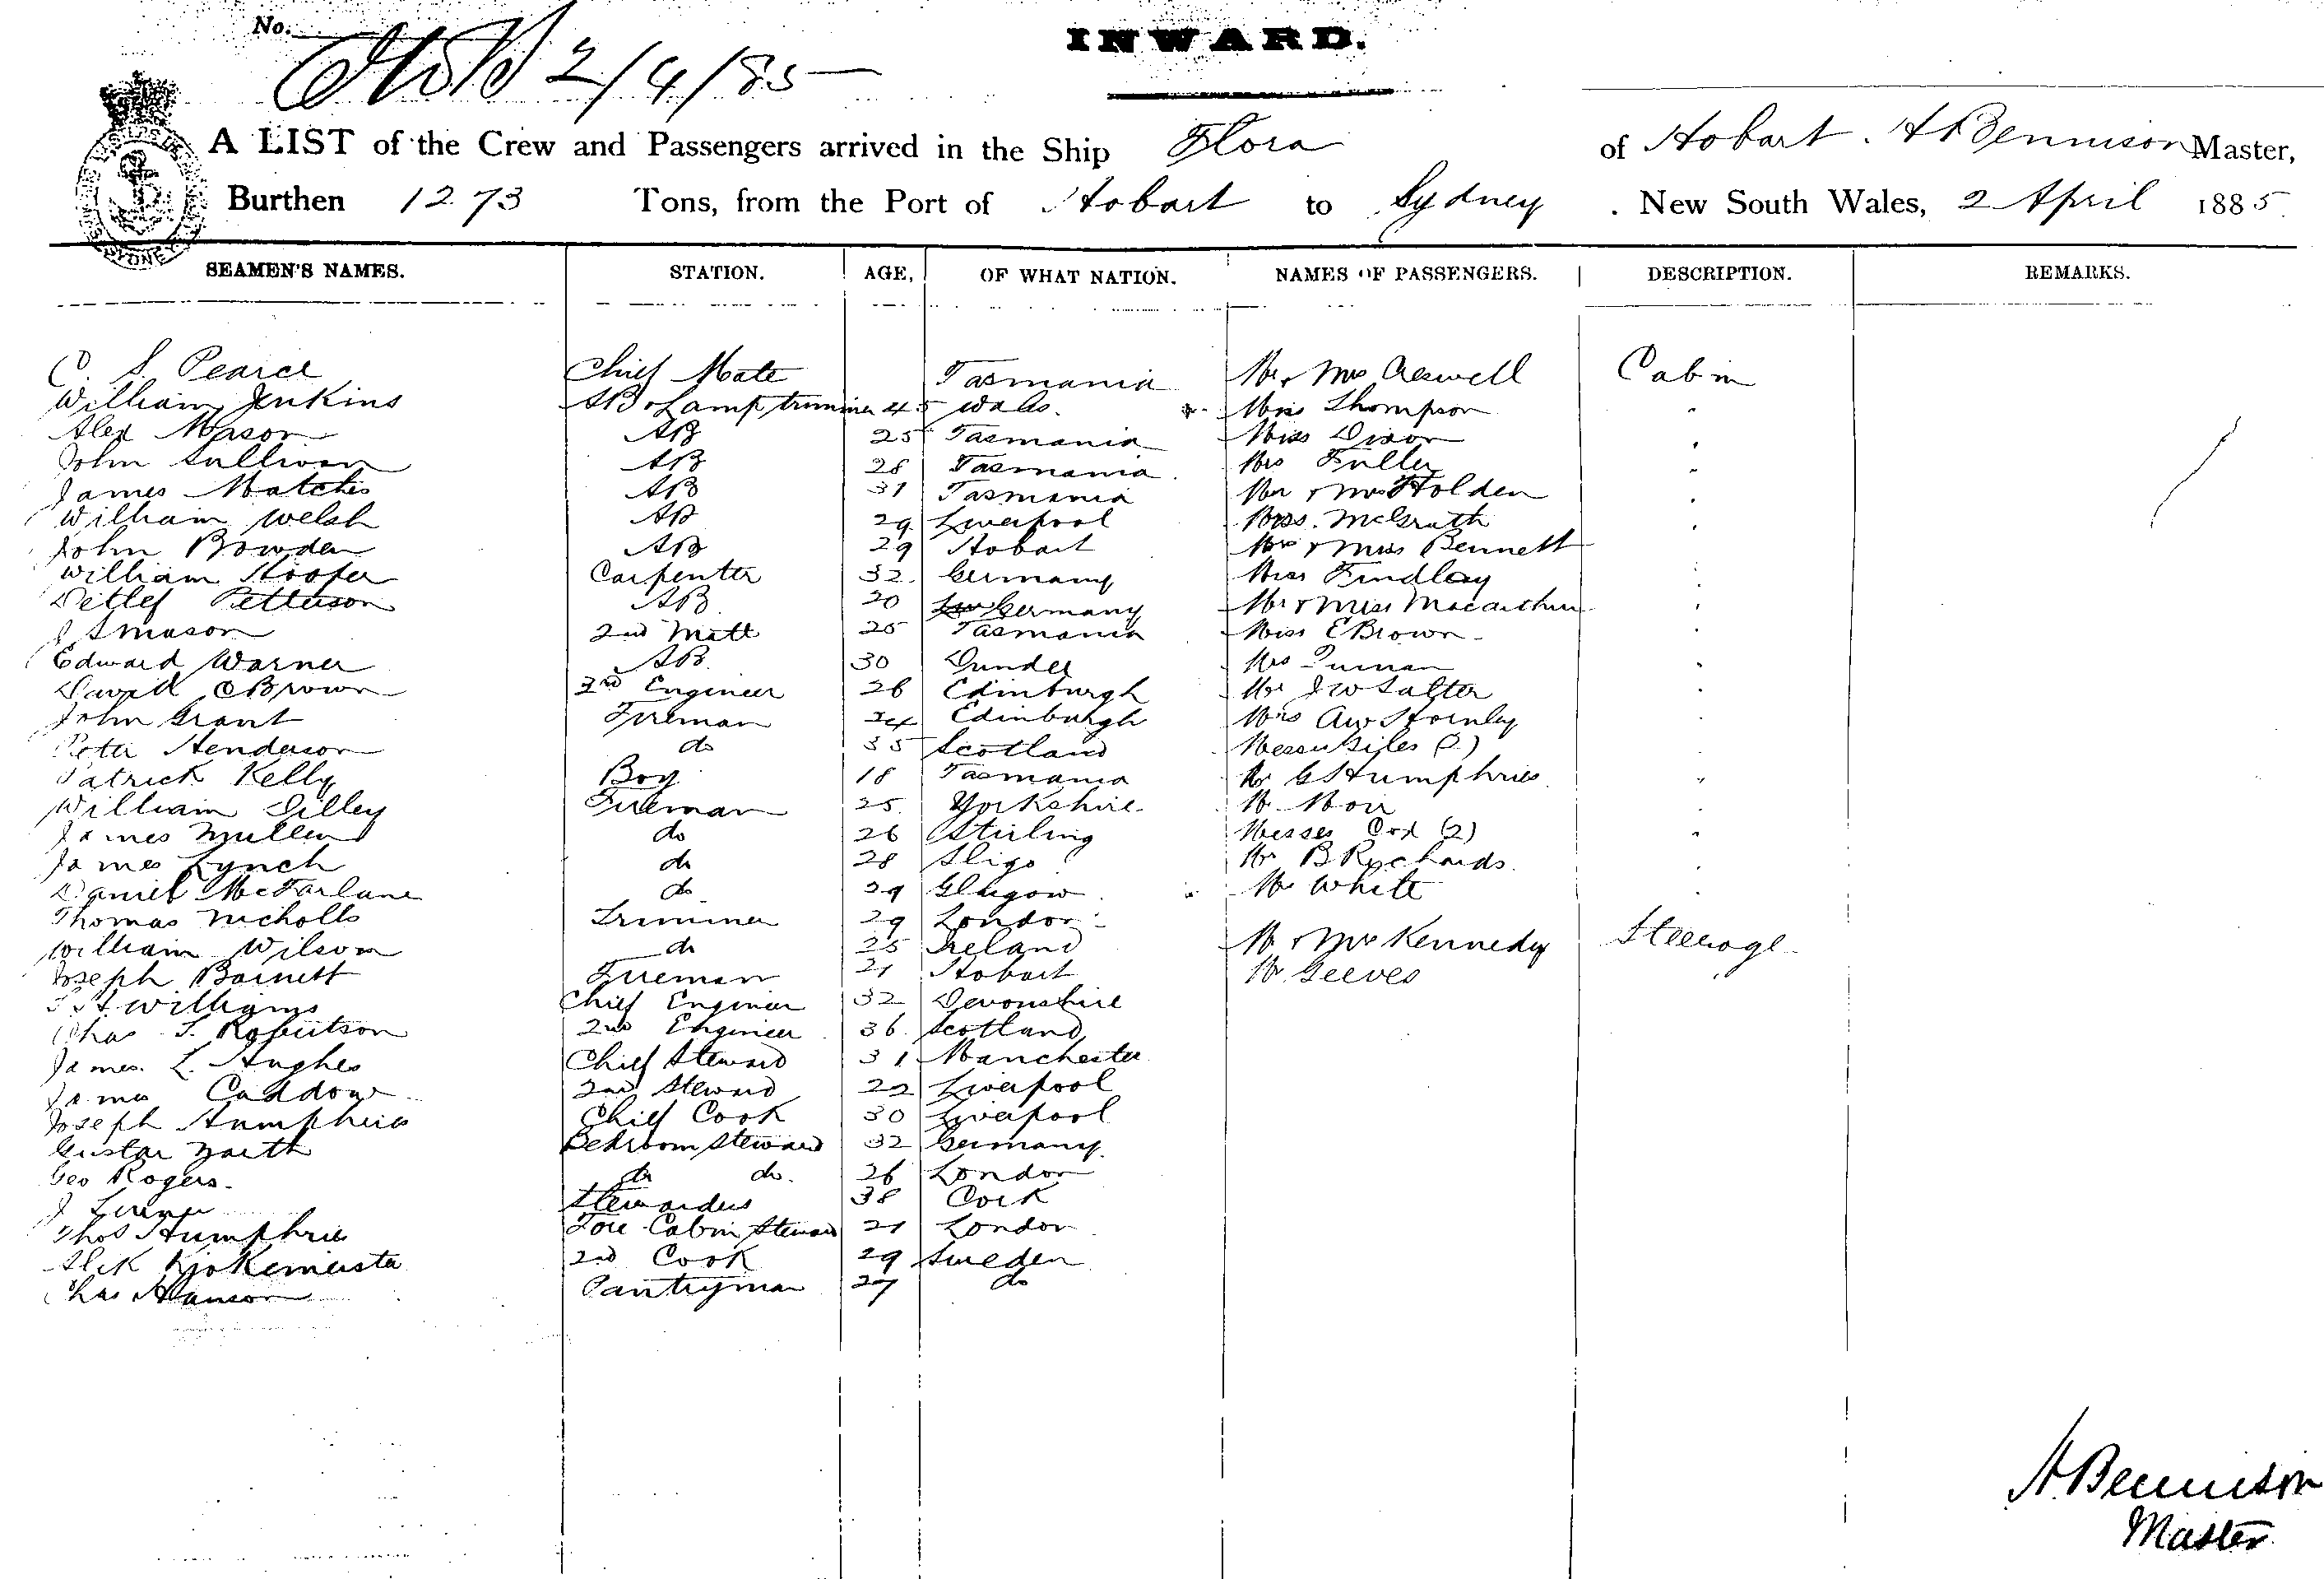 No.
2/4/85
INWARD.
A LIST of the Crew and Passengers arrived in the Ship Flora of Hobart. A Bennison Master,
Burthen 1273 Tons, from the Port of Hobart to Sydney . New South Wales, 2 April 1885.
SEAMEN'S NAMES. STATION. AGE, OF WHAT NATION. NAMES OF PASSENGERS. DESCRIPTION. REMARKS.
C. S. Pearce Chief Mate Tasmania Mr & Mrs Cabin
William Jenkins AB & Lamptrimmer 45 Wales. Miss Thompson "
Alex Mason AB 25 Tasmania Miss Dixon "
John Sullivan AB 28 Tasmania Mrs Fuller "
James Matches AB 31 Tasmania Mr & Mrs Holden "
William Welsh AB 29 Liverpool McGrath "
John Bowden AB 29 Hobart Mrs & Miss Bennett "
William Hoofer Carpenter 32 Germany Miss Findlay "
Detlef Petterson AB 20 Germany Mr & Miss Macarthur "
J A Mason 2nd Mate 25 Tasmania Miss E Brown "
Edward Warner AB 30 Dundee Mrs "
David C Brown 3rd Engineer 26 Edinburgh Mr J W Salter "
John Grant Fireman 24 Edinburgh Mrs A W "
Peter Henderson do 35 Scotland Messrs Giles (2) "
Patrick Kelly Boy 18 Tasmania Mr G Humphries "
William Dilley Fireman 25 Yorkshire Mr Moir "
James Mullen do 26 Stirling Messrs Cox (2) "
James Lynch do 28 Sligo Mr B Richards "
Daniel McFarlane do 29 Glasgow Mr White "
Thomas Nicholls Trimmer 29 London
William Wilson do 25 Ireland Mr & Mrs Kennedy Steerage
Joseph Barnett Fireman 21 Hobart Mr Geeves "
Williams Chief Engineer 32 Devonshire
Chas S. Robertson 2nd Engineer 36 Scotland
James L. Hughes Chief Steward 31 Manchester
James Caddow 2nd Steward 22 Liverpool
Joseph Humphries Chief Cook 30 Liverpool
Gustav Bedroom Steward 32 Germany
Geo Rogers do do. 26 London
J Stewardess 38 Cork
Thos Humphries Fore Cabin Steward 21 London
2nd Cook 29 Sweden
Chas Hanson Pantryman 27 do
A Bennison
Master